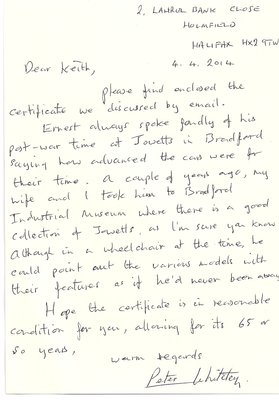 2. LAUREL BANK CLOSE
HOLMFIELD
HALIFAX HX2 9TW
4. 4. 2014
Dear Keith,
please find enclosed the
certificate we discussed by email.
Ernest always spoke fondly of his
post-war time at Jowetts in Bradford
saying how advanced the cars were for
their time. A couple of years ago, my
wife and I took him to Bradford
Industrial Museum where there is a good
collection of Jowetts. as I'm sure you know
Although in a wheelchair at the time, he
could point out the various models with
their features as if he'd never been away
Hope the certificate is in reasonable
condition for you, allowing for its 65 or
so years,
warm regards
Peter Whiteley.